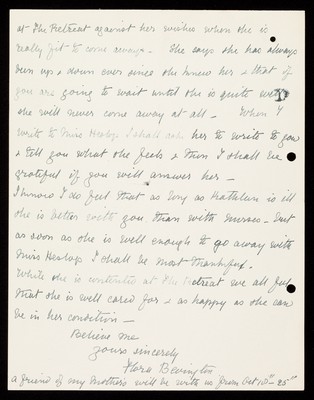 at The Retreat against her wishes when she is
really fit to come away. She says she has always
been up & down ever since she knew her & that if
you are going to wait until she is quite well
she will never come away at all - When I
write to Miss Heslop I shall ask her to write to you
& tell you what she feels & then I shall be
grateful if you will answer her -
I know I do feel that as long as Kathleen is ill
she is better with you than with nurses - but
as soon as she is well enough to go away with
Miss Heslop I shall be most thankful -
While she is contented at the Retreat we all feel
that she is well cared for & as happy as she can
be in her condition -
Believe me
Yours sincerely
Flora Bevington
a friend of my Mother's will be with us from Oct 10th - 25th